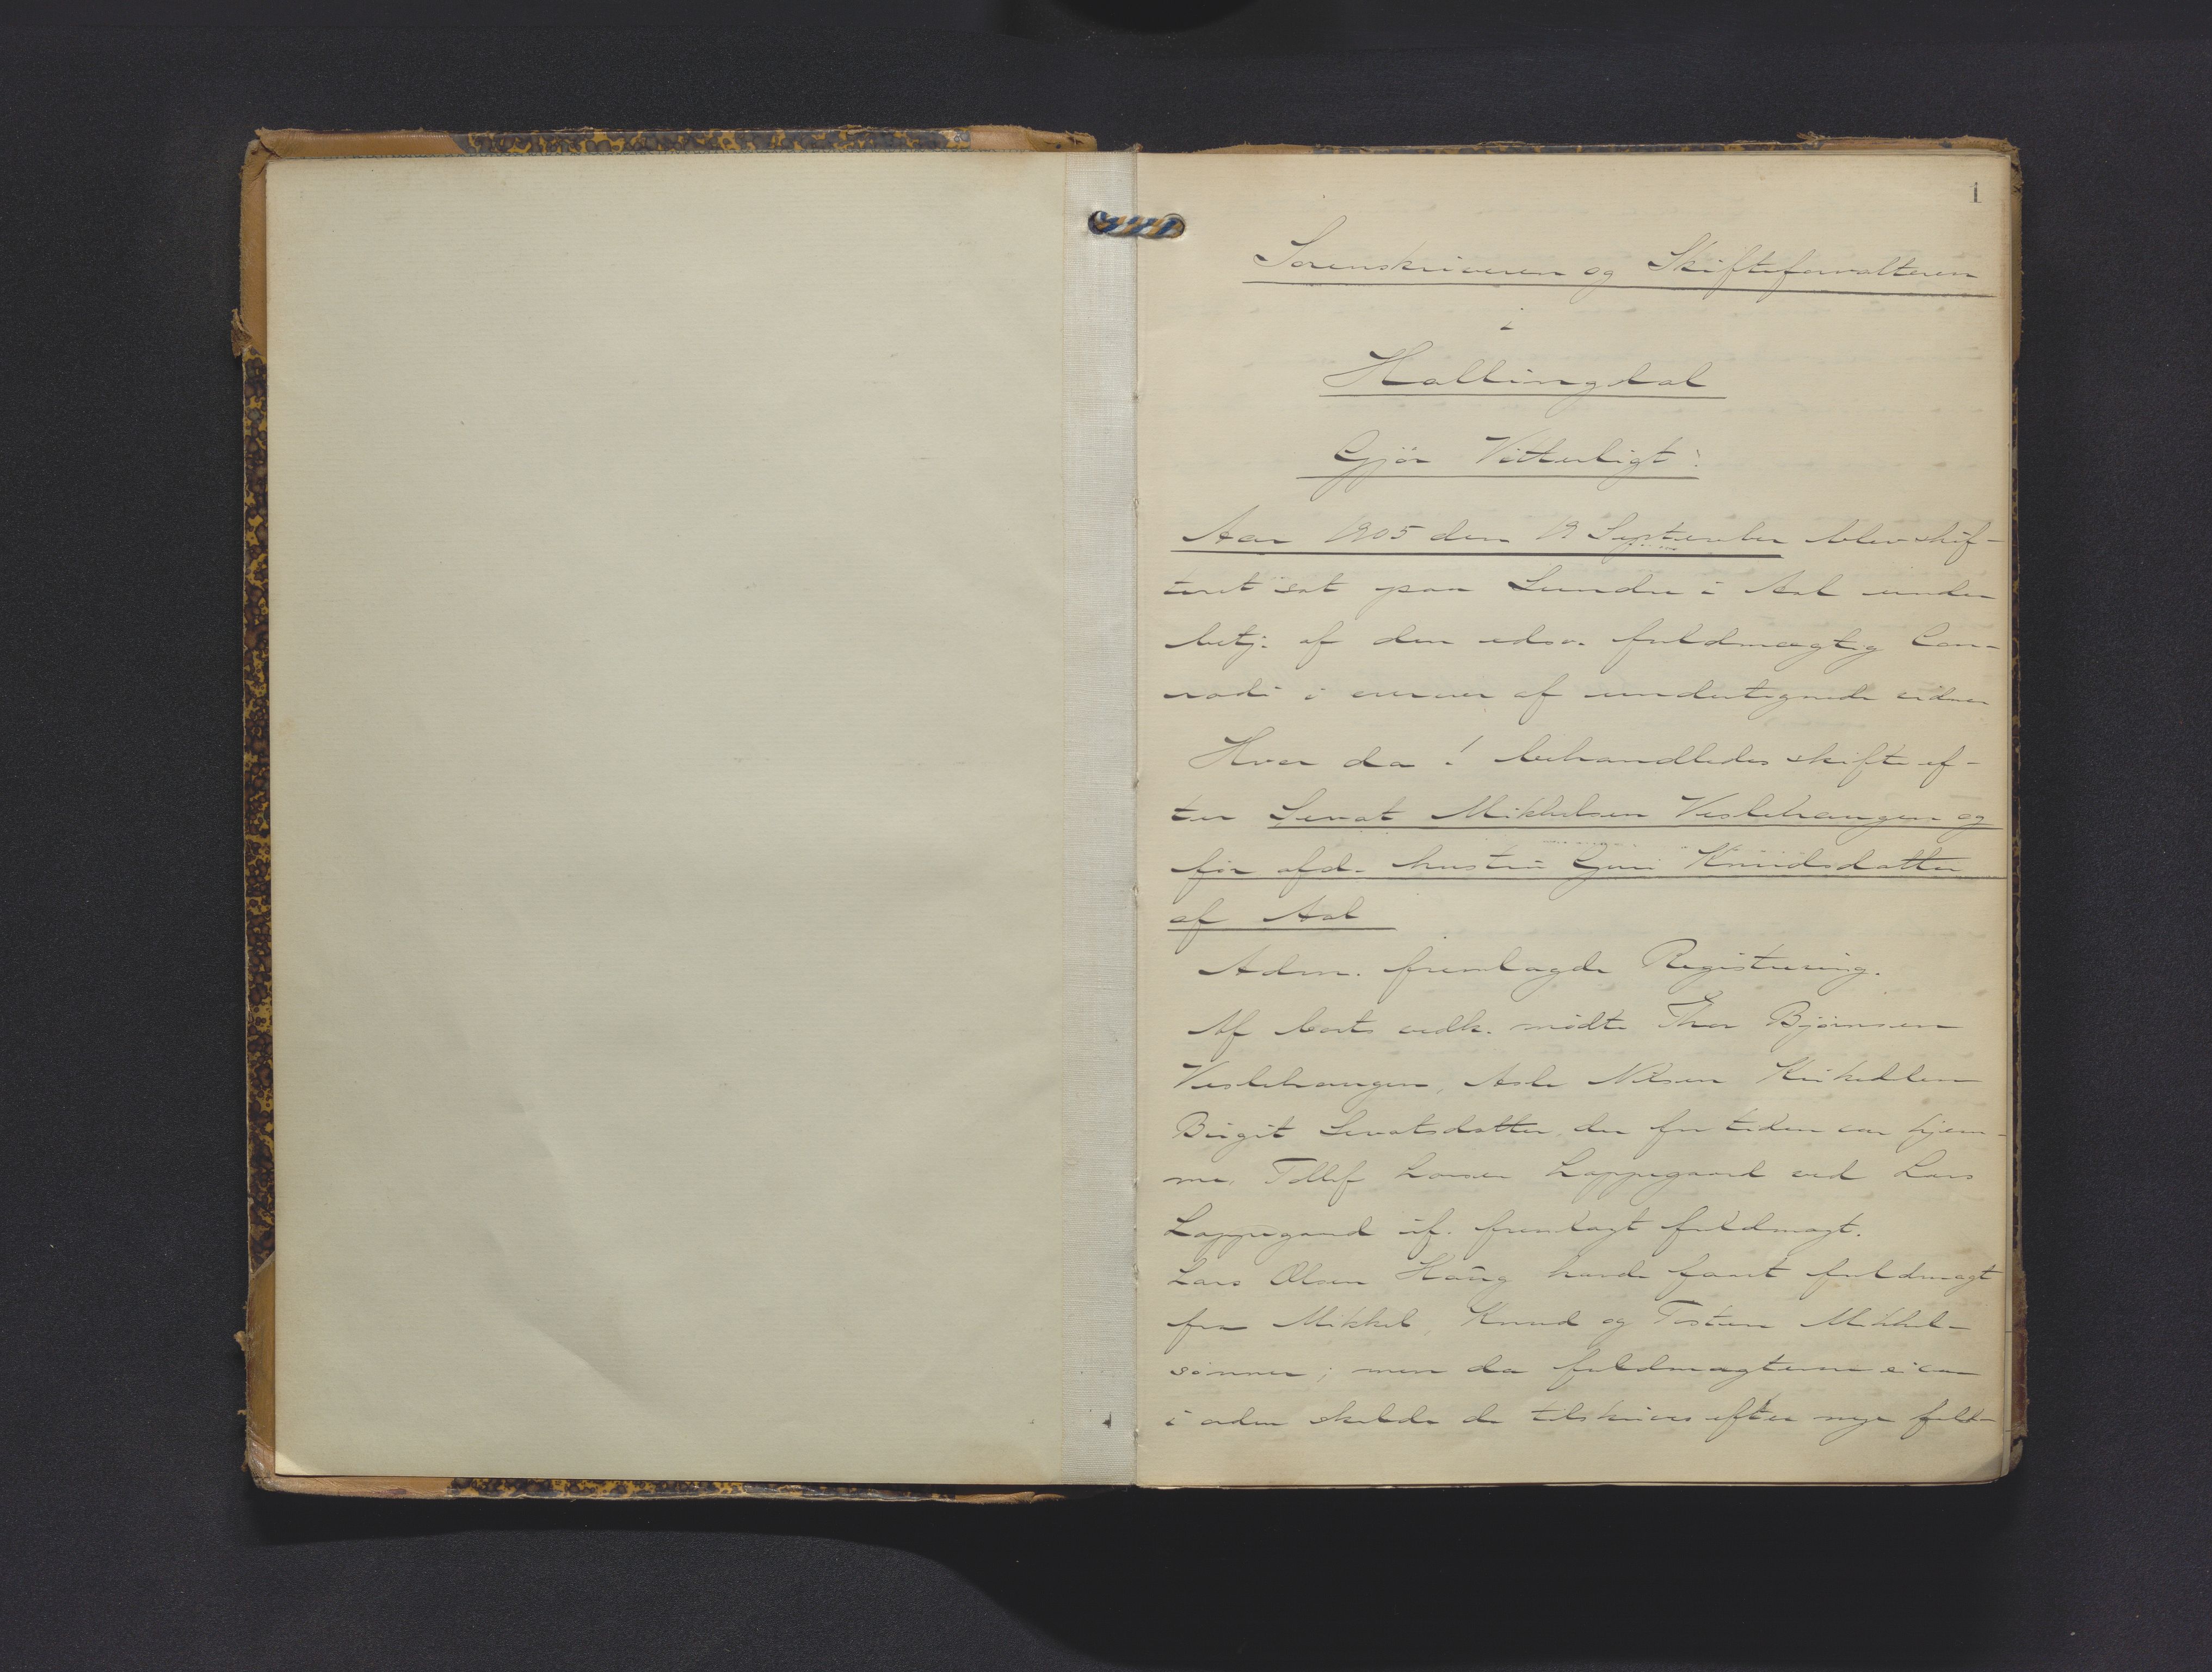 1
Sorenskriveren og Skifteforvalteren
i
Hallingdal
Gjör Vitterligt:
Aar 1905 den 19 September blev skif-
teret sat paa Sundre i Aal under
betj. af den edsv. fuldmægtig Con-
radi i overvær af undertegnede vidner
Hvor da! behandledes skifte ef-
ter Sevat Mikkelsen Veslehaugen og
før afd. hustru Guri Knudsdatter
af Aal
Adm. fremlagde Registrering.
Af boets vedk. mödte Thor Björnsen
Veslehaugen, Asle Nilsen
Birgit Sevatsdatter, der for tiden var hjem-
me, Tollef Larsen Loppegaard ved Lars
Loppegaard if. fremlagt fuldmagt.
Lars Olsen Haug havde faaet fuldmagt
fra Mikkel, Knud og Tosten Mikkel-
sönner; men da fuldmagterne ei var
i orden skulde de tilskrives efter nye fuld-